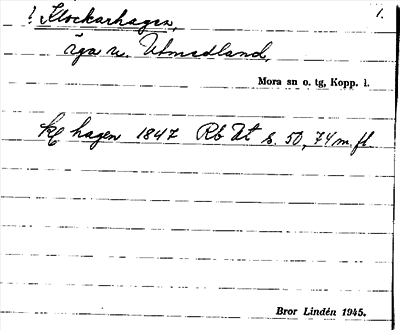 ! Klockarhagen, 1.
äga v. Utmedland.
Mora sn o. tg, Kopp. l.
hagen 1847 Rb Ut s. 50, 74 m. fl.
Bror Lindén 1945.